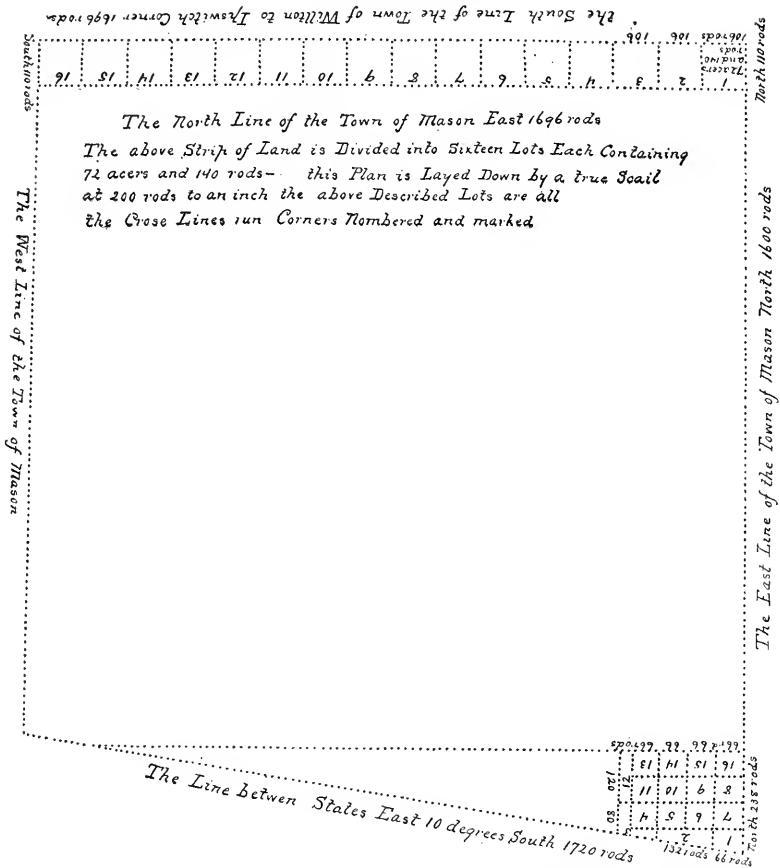 the South Line of the Town of Willton to Ipswitch Corner 1696 rods
South 110 rods
16 15 14 13 12 11 10 9 8 7 6 5 4 3 2 1
72 acers
and 140
rods
106 106 106 rods
North 110 rods
The North Line of the Town of Mason East 1696 rods
The above Strip of Land is Divided into Sixteen Lots Each Containing
72 acers and 140 rods- this Plan is Layed Down by a true Scail
at 200 rods to an inch the above Described Lots are all
the Crose Lines run Corners Nombered and marked
The West Line of the Town of Mason
The East Line of the Town of Mason North 1600 rods
66 66 66 rods
12 13 14 15 16
11 10 9 8
4 5 6 7
3 2 1
120
80
North 238 rods
132 rods 66 rods
The Line betwen States East 10 degrees South 1720 rods